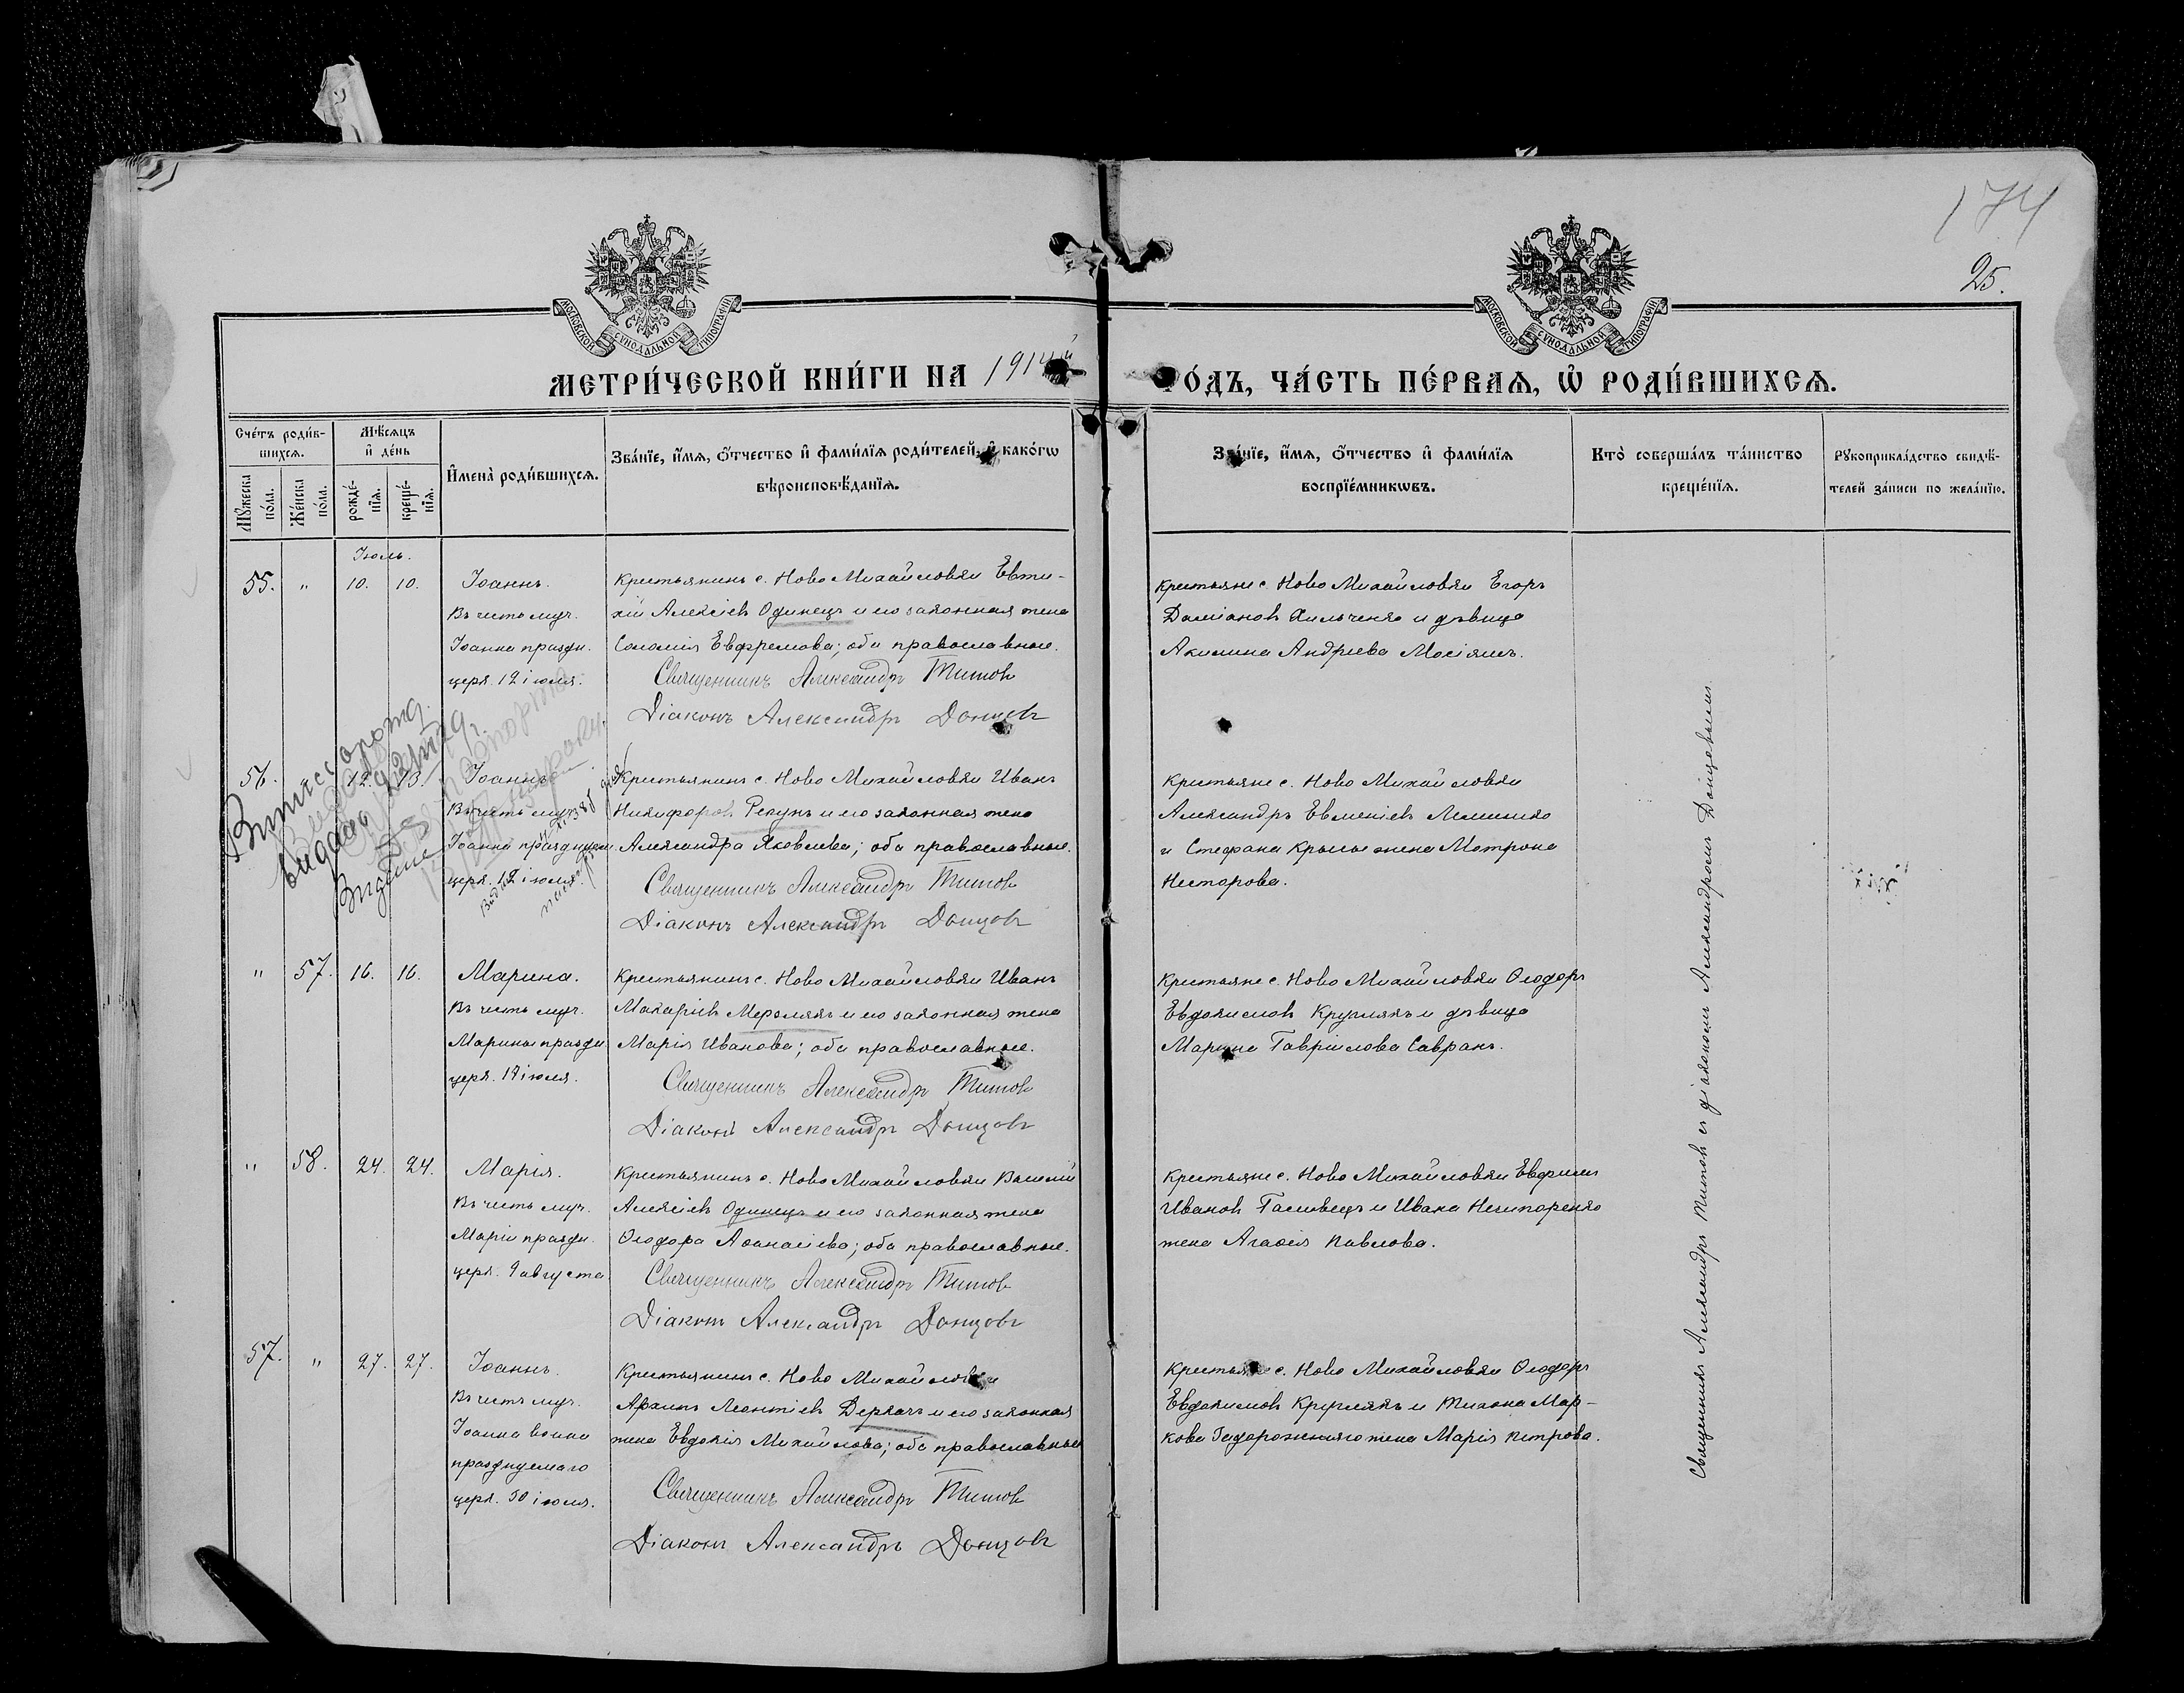 174
25.
МОСКОВСКОЙ СѴНОДАЛЬНОЙ ТИПОГРАФІИ
МОСКОВСКОЙ СѴНОДАЛЬНОЙ ТИПОГРАФІИ
МЕТРИ́ЧЕСКОЙ КНИ́ГИ НА 191
О́ДЪ, ЧА́СТЬ ПЕ́РВАѦ, Ѡ҆ РОДИ́ВШИХСѦ.
Сче́тъ роди́вшихсѧ.
Мꙋ́жеска по́ла.
Же́нска по́ла.
Мѣ́сѧцъ и҆ де́нь
рожде́нїѧ.
креще́нїѧ.
И҆мена̀ роди́вшихсѧ.
Зва́нїе, и҆́мѧ, ѻ҆́тчество и҆ фами́лїѧ роди́телей, и҆ како́гѡ
вѣроисповѣ́данїѧ.
Зва́нїе, и҆́мѧ, ѻ҆́тчество и҆ фами́лїѧ
воспрїе́мникѡвъ.
Кто̀ соверша́лъ та́инство
креще́нїѧ.
Рꙋкоприкла́дство свидѣ́-
телей за́писи по жела́нїю.
Іюль.
55. " 10. 10. Іоаннъ.
Въ честь муч.
Іоанна праздн.
церк. 12 іюля.
Крестьянинъ с. Ново Михайловки Евти-
хій Алексіевъ Одинецъ и его законная жена
Соломія Евфремова; оба православные.
Священникъ Александръ Титовъ
Діаконъ Александръ Донцовъ
Крестьяне с. Ново Михайловки Егоръ
Даміановъ Хильченко и дѣвица
Акилина Андреева Мосіяшъ.
56. " 12. 13. Іоаннъ.
Въ честь муч.
Іоанна празднуем
церк. 12 іюля.
Крестьянинъ с. Ново Михайловки Иванъ
Никифоровъ Рекунъ и его законная жена
Александра Яковлева; оба православные.
Священникъ Александръ Титовъ
Діаконъ Александръ Донцовъ
Крестьяне с. Ново Михайловки
Александръ Евменіевъ Лемешко
и Стефана жена Матрона
Несторова.
" 57. 16. 16. Марина.
Въ честь муч.
Марины праздн.
церк. 17 іюля.
Крестьянинъ с. Ново Михайловки Иванъ
Макаріевъ Мерзлякъ и его законная жена
Марія Иванова; оба православные.
Священникъ Александръ Титовъ
Діаконъ Александръ Донцовъ
Крестьяне с. Ново Михайловки Ѳеодоръ
Евдокимовъ Круглякъ и дѣвица
Марина Гавріилова Савранъ.
" 58. 24. 24. Марія.
Въ честь муч.
Маріи праздн.
церк. 9 августа
Крестьянинъ с. Ново Михайловки Василій
Алексіевъ Одинецъ и его законная жена
Ѳеодора Аѳанасіева; оба православные.
Священникъ Александръ Титовъ
Діаконъ Александръ Донцовъ
Крестьяне с. Ново Михайловки Евфимъ
Ивановъ и Ивана Нечипоренко
жена Агаѳія Павлова.
57. " 27. 27. Іоаннъ.
Въ честь муч.
Іоанна воина
празднуемаго
церк. 30 іюля.
Крестьянинъ с. Ново Михайловки
Архипъ Леонтіевъ Деркачъ и его законная
жена Евдокія Михайлова; оба православные
Священникъ Александръ Титовъ
Діаконъ Александръ Донцовъ
Крестьяне с. Ново Михайловки Ѳеодоръ
Евдокимовъ Круглякъ и Тихона Мар-
кова жена Марія Петрова.
Священникъ Александръ Титовъ съ діакономъ Александромъ Донцовымъ.